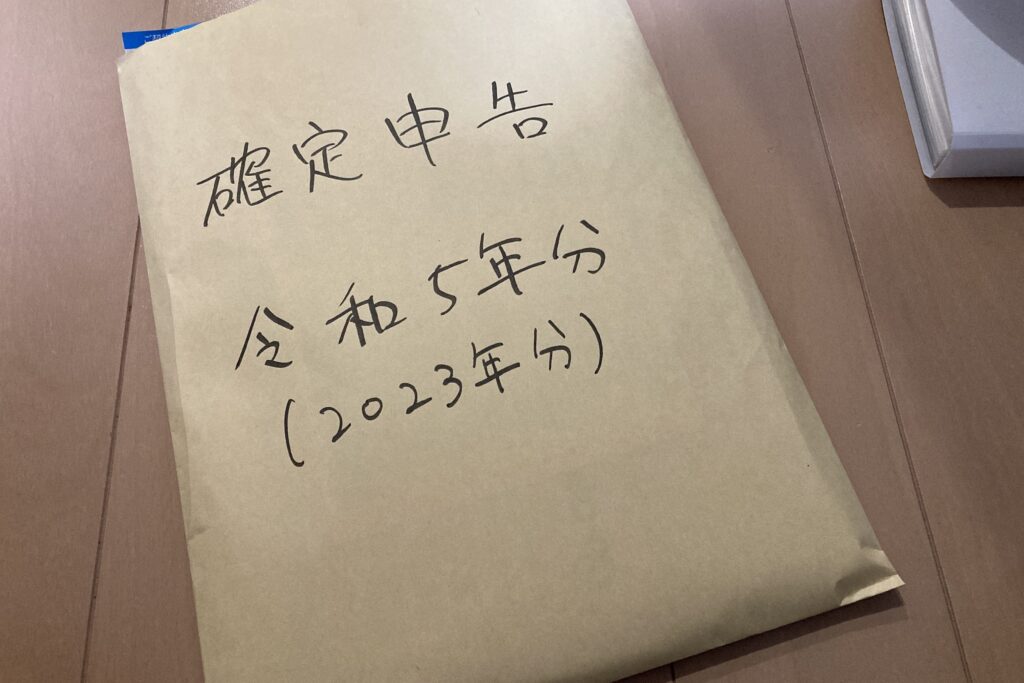 確定申告
令和5年分
(2023年分)